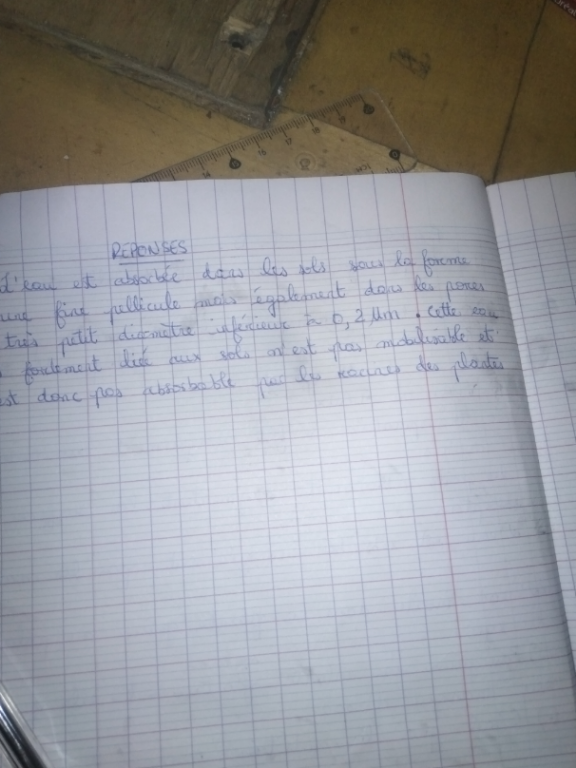 REPONSES
d'eau est absorbée dans les sols sous la forme
une fine pellicule mais également dans les pores
très petit diamètre inférieur à 0,2 µm. Cette eau
fortement liée aux sols n'est pas mobilisable et
est donc pas absorbable par les racines des plantes